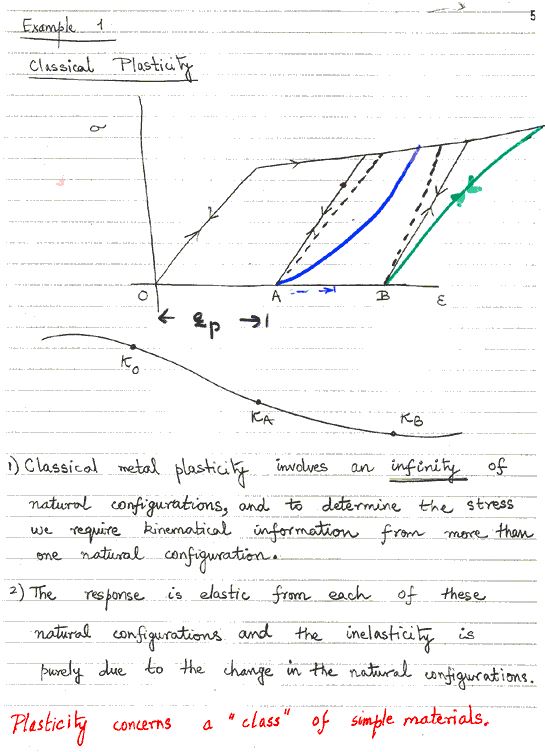 5
Example 1
Classical Plasticity
σ
O
A
B
ε
ε_p
K_O
K_A
K_B
1) Classical metal plasticity involves an infinity of
natural configurations, and to determine the stress
we require kinematical information from more than
one natural configuration.
2) The response is elastic from each of these
natural configurations and the inelasticity is
purely due to the change in the natural configurations.
Plasticity concerns a "class" of simple materials.